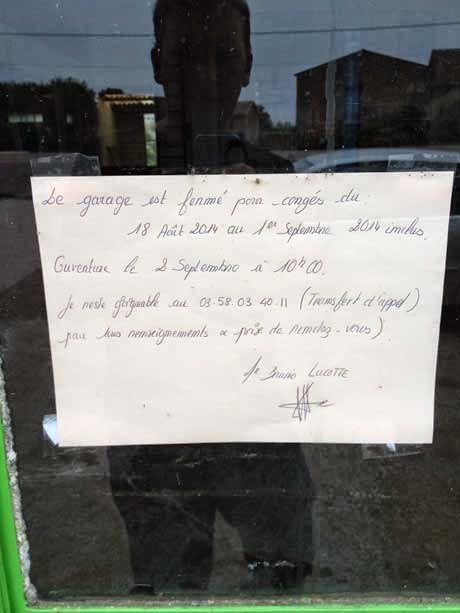 Le garage est fermé pour congés du
18 Août 2014 au 1er Septembre 2014 inclus.
Ouverture le 2 Septembre à 10h00.
Je reste joignable au 03.58.03.40.11 (Transfert d'appel)
pour tous renseignements & prise de rendez-vous)
Mr Bruno LUCOTTE